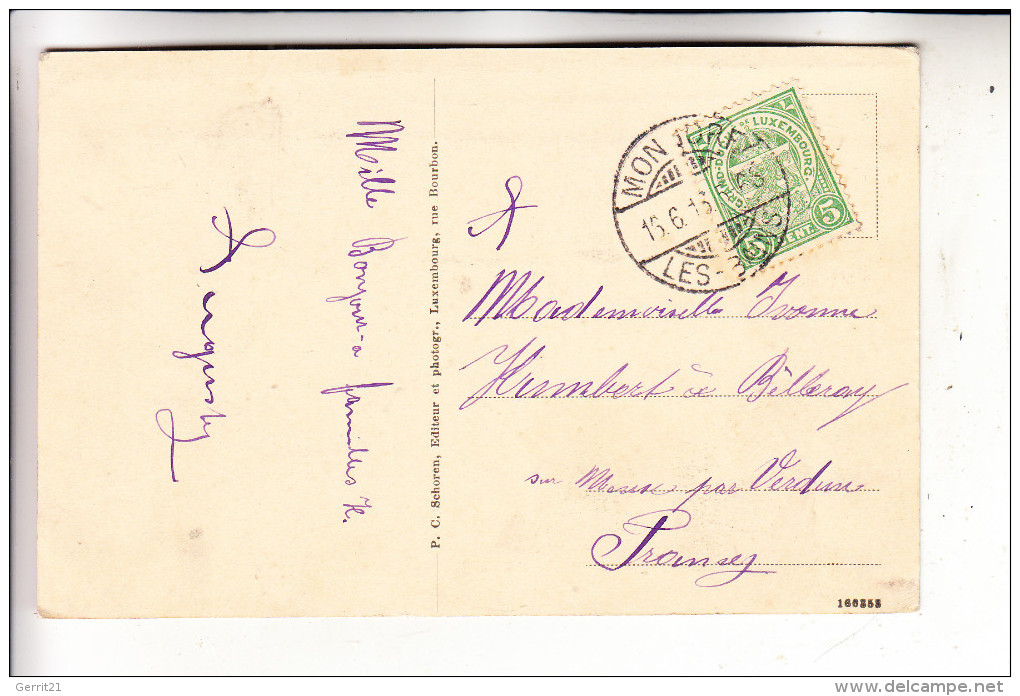 Mille Bonjour-a familles H.
P. C. Schoren, Editeur et photogr., Luxembourg, rue Bourbon.
GRAND-DUCHÉ DE LUXEMBOURG
5 CENT. 5
MONDORF
LES-B
15.6.13
Mademoiselle Yvonne
Humbert à Billeray
sur Meuse par Verdun
166353
Gerrit21
www.delcampe.net